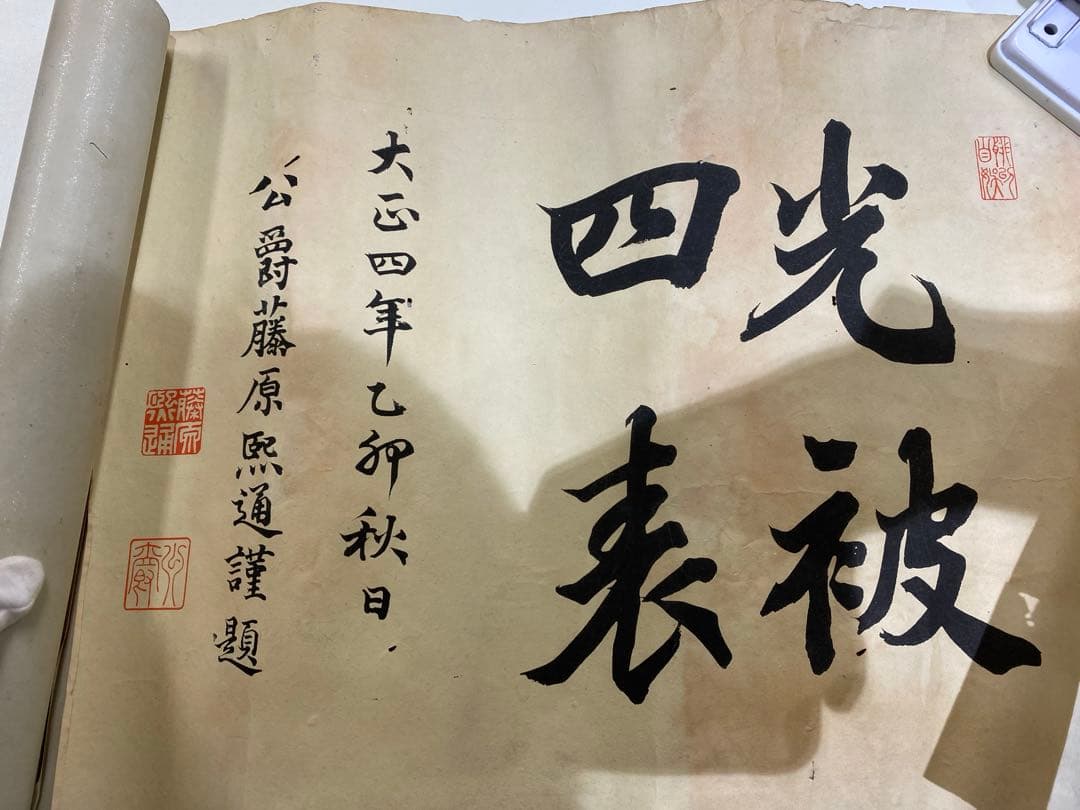 光被
四表
大正四年乙卯秋日
公爵藤原熙通謹題
藤原
熙通
公
爵